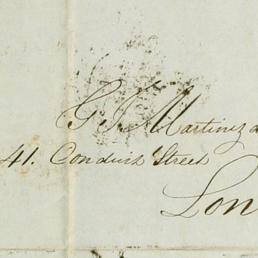 G. J. Martinez
41. Conduit Street
Lon